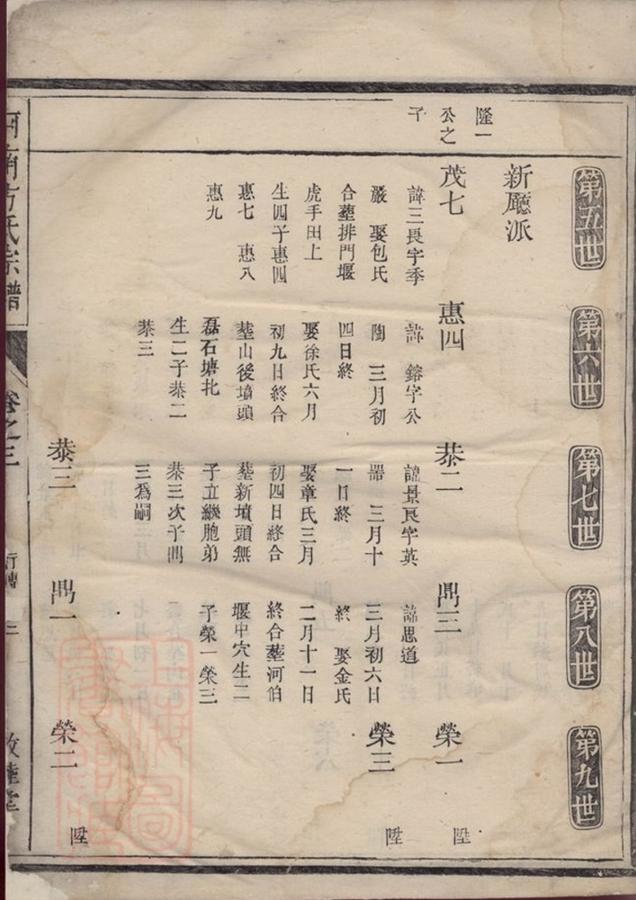 第五世
第六世
第七世
第八世
第九世
新廳派
隆一
公之
子
茂七
諱三長字季
嚴 娶包氏
合塟排門堰
虎手田上
生四子惠四
惠七 惠八
惠九
惠四
諱鎔字公
陶 三月初
四日終
娶徐氏六月
初九日終合
塟山後墳頭
磊石塘北
生二子㳟二
㳟三
㳟二
諱景良字英
噐 三月十
一日終
娶章氏三月
初四日終合
塟新墳頭無
子立繼胞弟
㳟三次子鼎
三爲嗣
鼎三
諱思道
三月初六日
終 娶金氏
二月十一日
終合塟河伯
堰中穴生二
子榮一榮三
榮一
陞
榮三
陞
㳟三
鼎一
榮二
陞
河南方氏宗譜
卷之三
行傳
二
敦睦堂